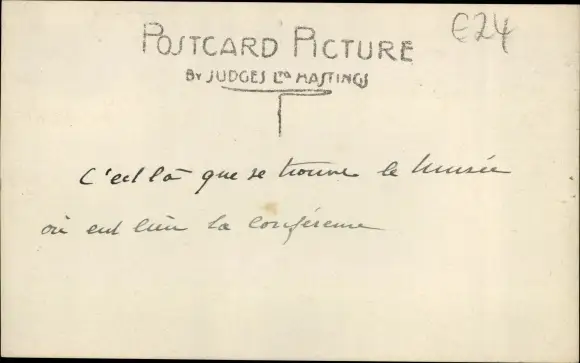 POSTCARD PICTURE
BY JUDGES LTD HASTINGS
E24
C'est là que se trouve le Musée
où eut lieu la conférence